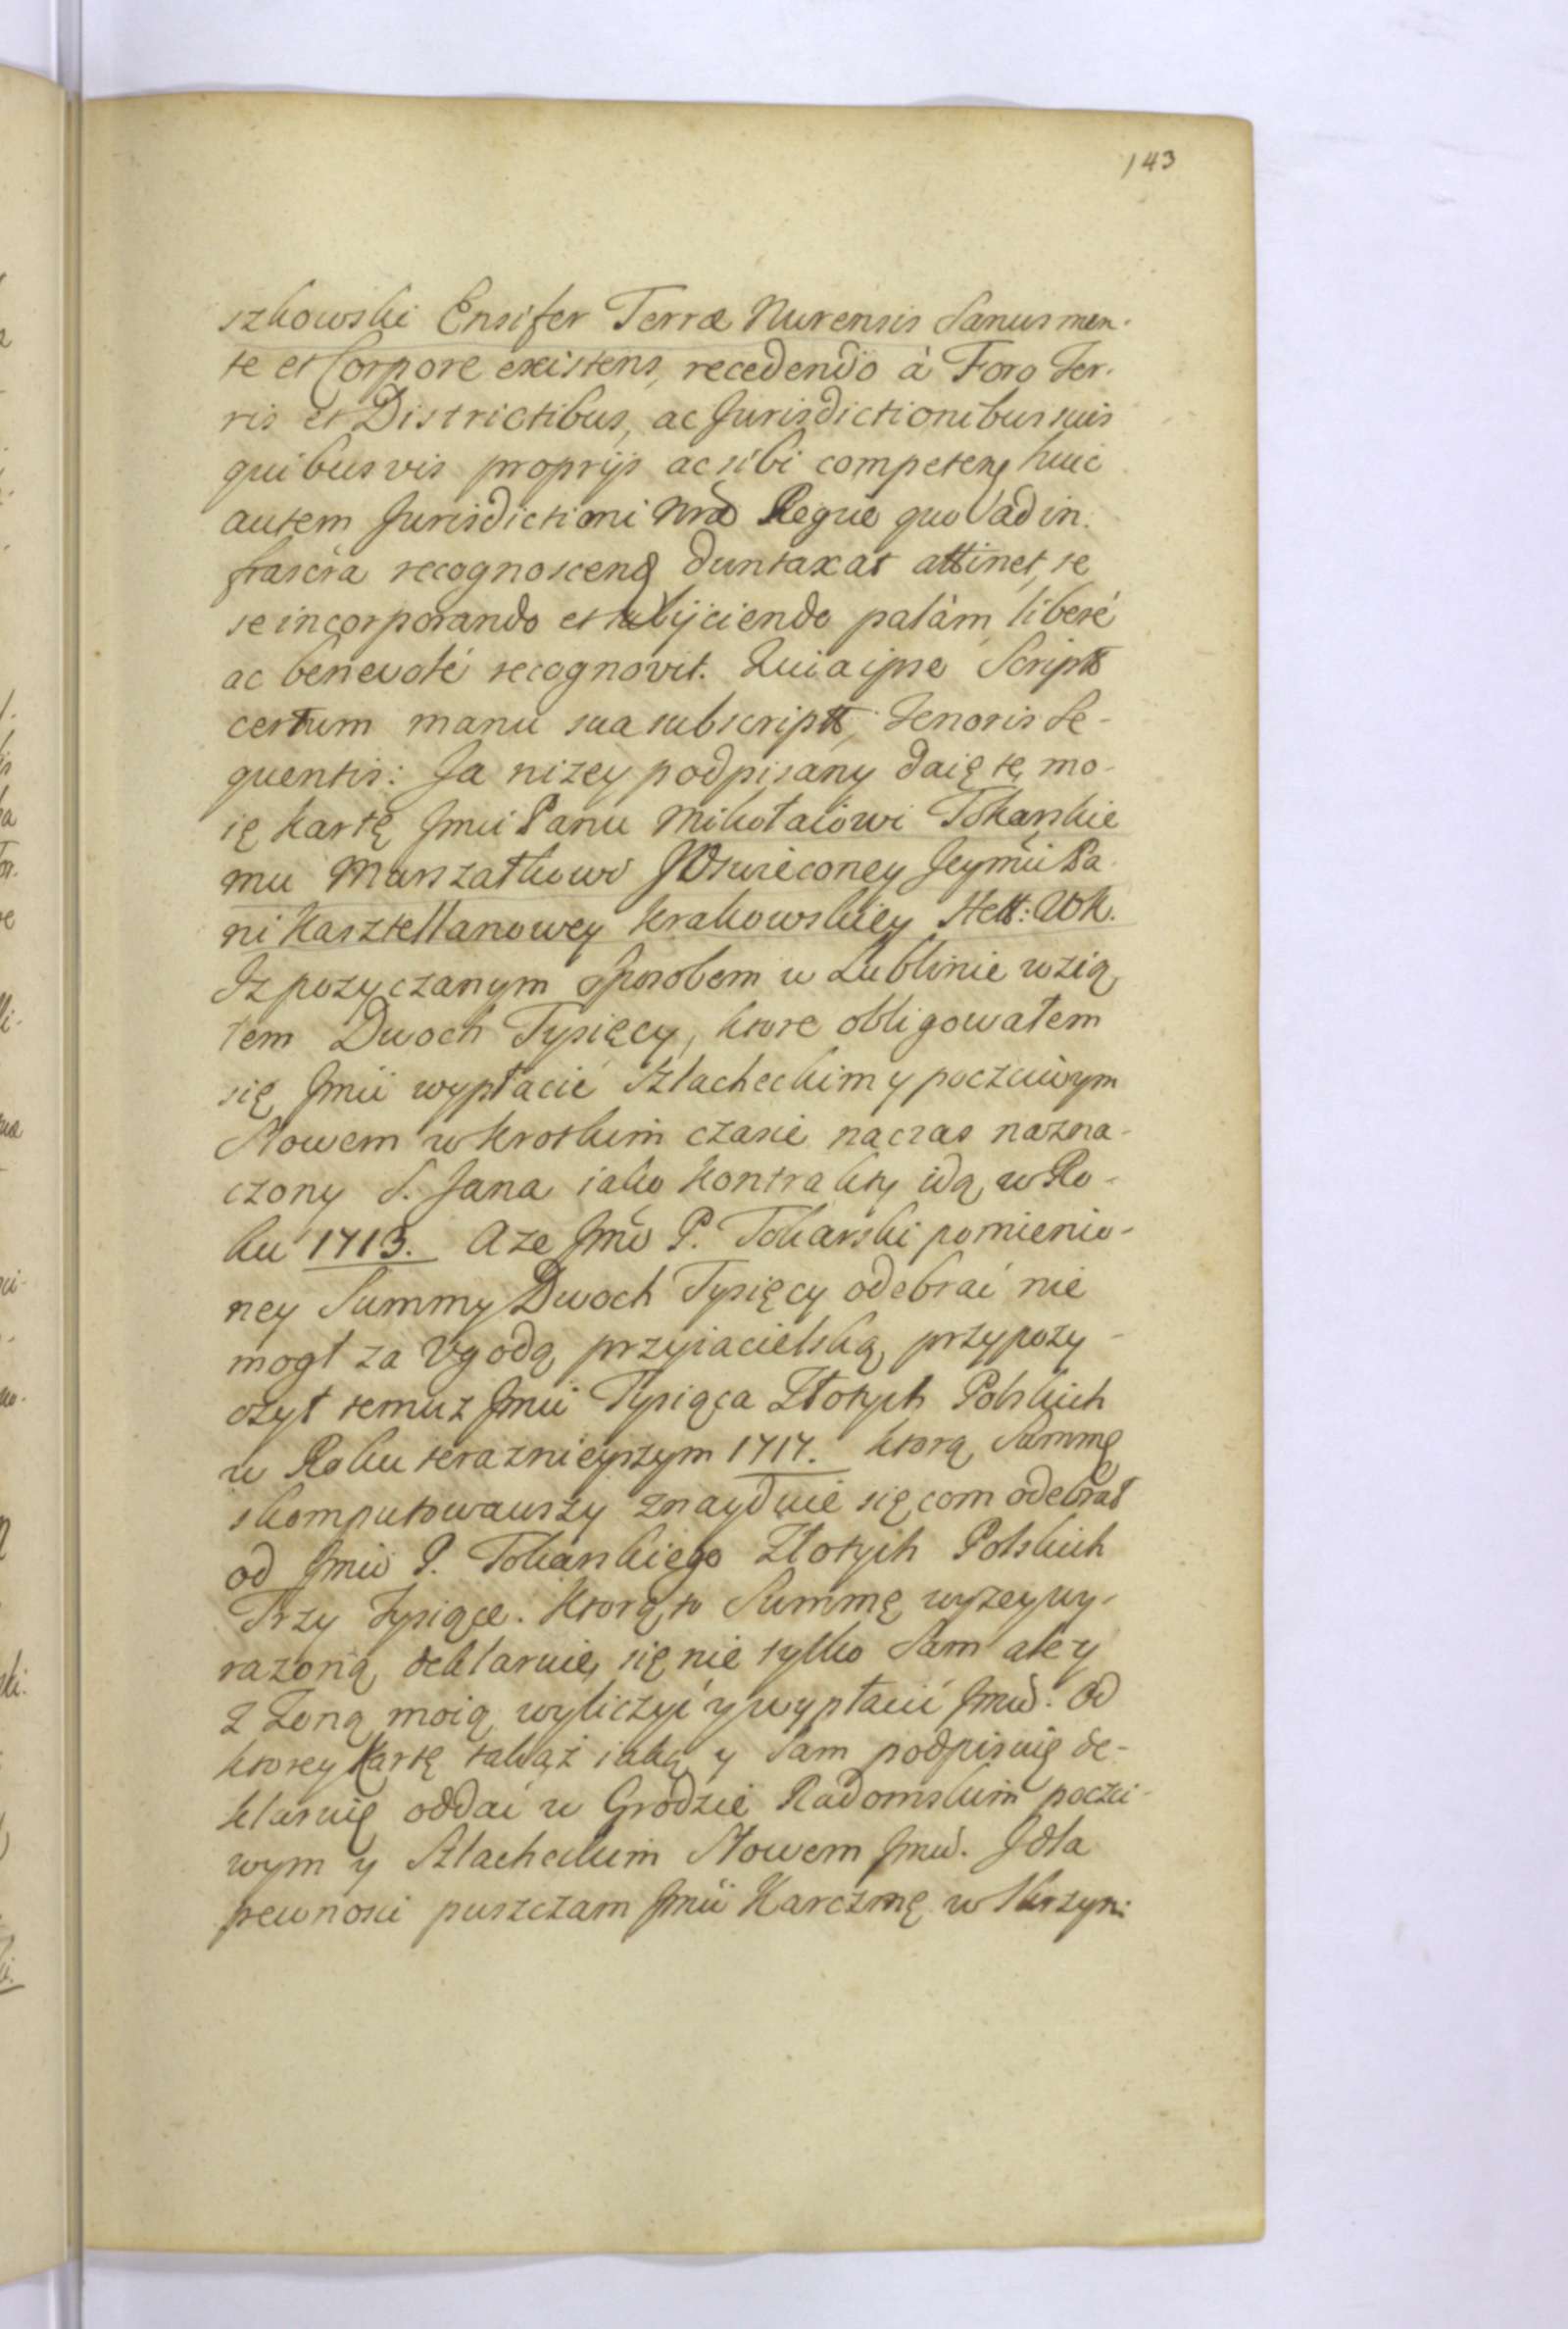 143
szkowski Ensifer Terræ Nurensis Sanus men-
te et Corpore existens, recedendo à Foro Ter-
ris et Districtibus, ac Jurisdictionibus suis
quibusvis proprijs ac sibi competen huic
autem Jurisdictioni Nræ Regiæ quo ad in-
frascra recognoscend duntaxat attinet, se
se incorporando et subijciendo palàm, liberé
ac benevolé recognovit. Quia ipse Scriptt
certum manu sua subscriptt, Tenoris Se-
quentis: Ja nizey podpisany daię tę mo-
ię kartę Jmci Panu Mikołaiowi Tokarskie
mu Marszałkowi JOswieconey Jeymci Pa
ni Kasztellanowey Krakowskiey Hett: WK.
Iz pozyczanym sposobem w Lublinie wzią
łem Dwoch Tysięcy, ktore obligowałem
się Jmci wypłacić Szlacheckim y poczciwym
Słowem w krotkim czasie na czas nazna-
czony S. Jana iako kontrakty idą w Ro-
ku 1713. A ze Jmć P. Tokarski pomienio-
ney Summy Dwoch Tysięcy odebrać nie
mogł za Vgodą przyiacielską, przypozy-
czył temuz Jmci Tysiąca Złotych Polskich
w Roku teraznieyszym 1717. ktorą Summę
skomputowawszy znayduie się com odebrał
od Jmci P. Tokarskiego Złotych Polskich
Trzy Tysiące. Ktorą to Summę wyzey wy-
razoną deklaruię się nie tylko Sam ale y
z Zoną moią wyliczyć y wypłacić Jmci. Od
ktorey kartę takąż iaką y Sam podpisuię de-
klaruię oddać w Grodzie Radomskim poczci-
wym y Szlacheckim Słowem Jmci. J dla
pewnosci puszczam Jmci Karczmę w Skrzyn-